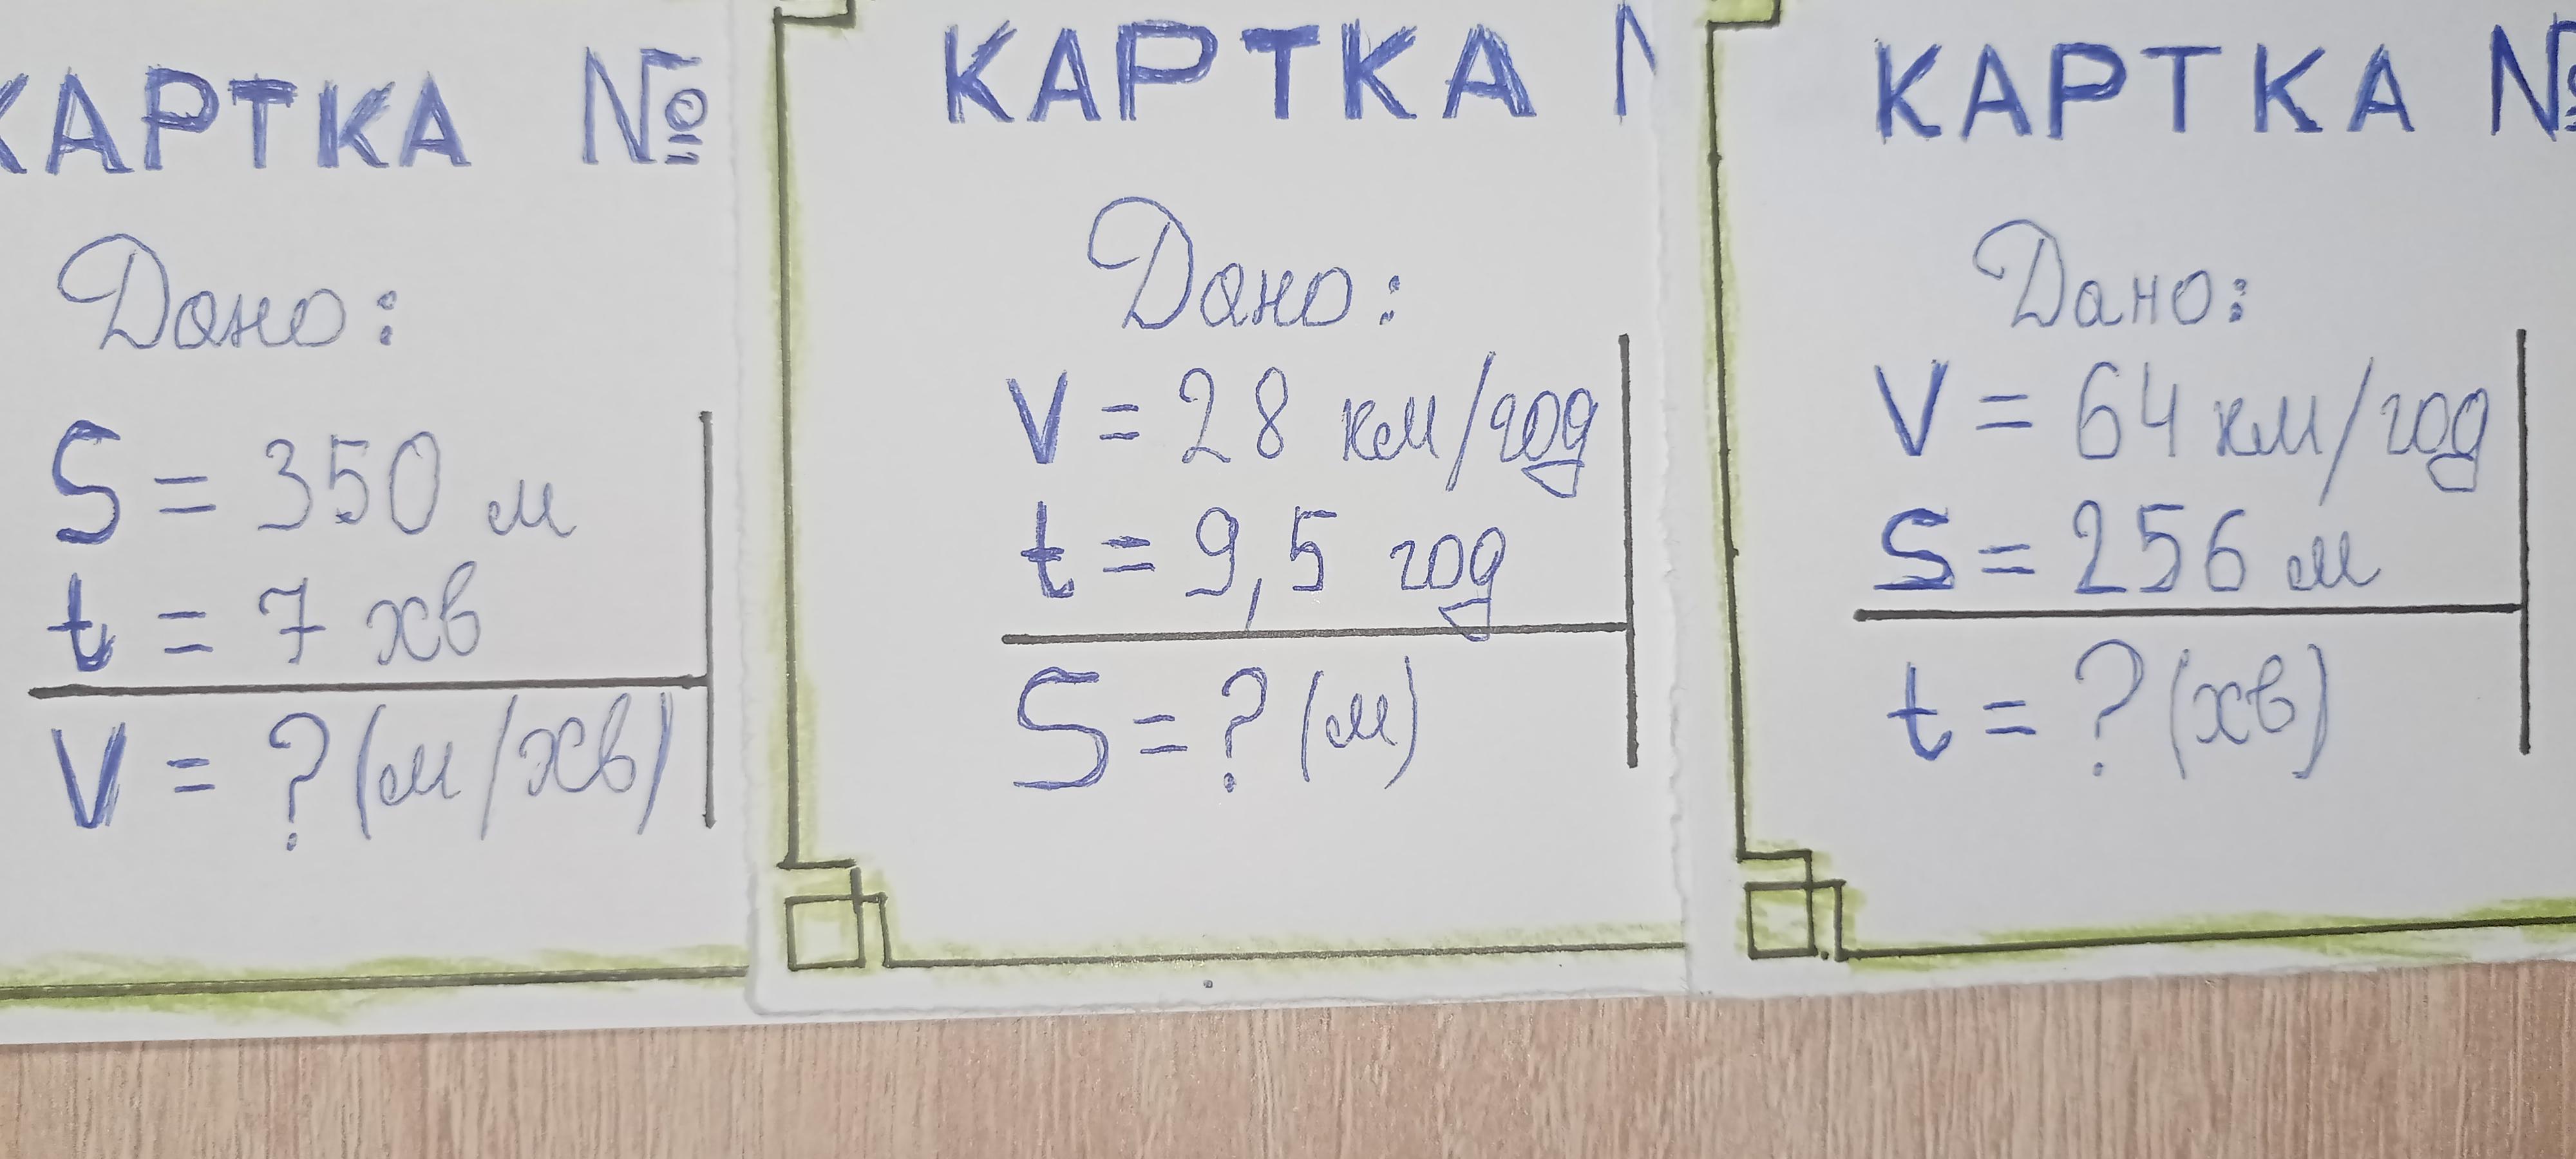 КАРТКА №
Дано:
S = 350 м
t = 7 хв
V = ? (м/хв)
КАРТКА
Дано:
V = 28 км/год
t = 9,5 год
S = ? (м)
КАРТКА №
Дано:
V = 64 км/год
S = 256 м
t = ? (хв)